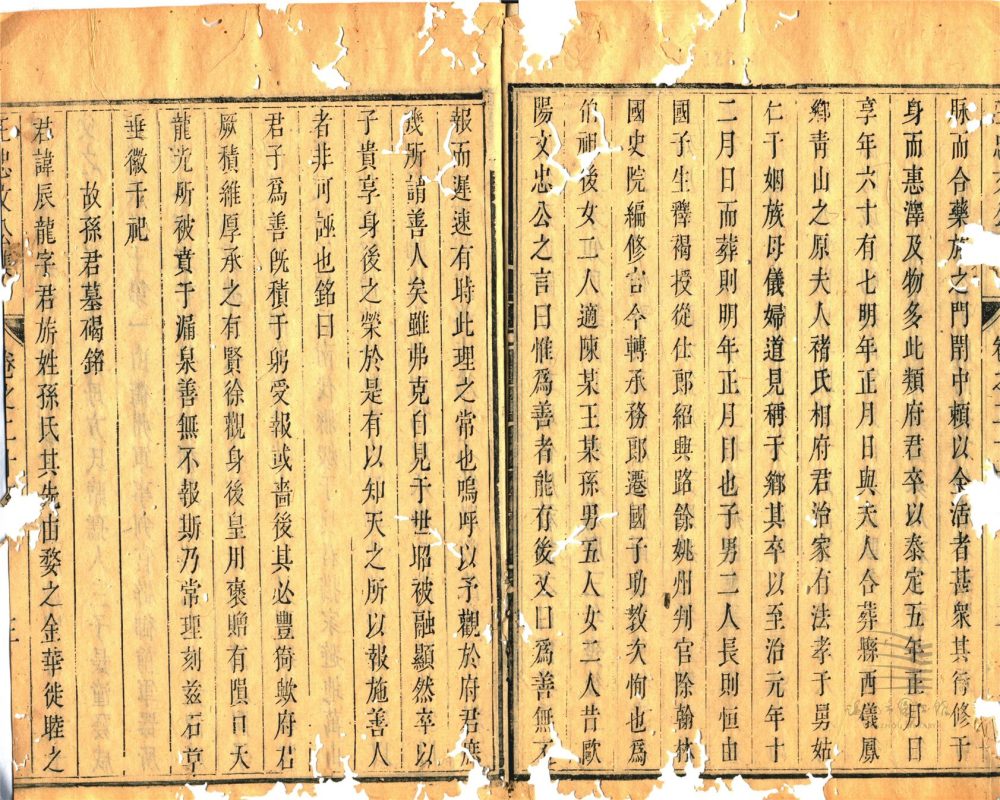 脉而合藥施之門閈中頼以全活者甚衆其行修于
身而惠澤及物多此類府君卒以泰定五年正月日
享年六十有七明年正月日與夫人合葬縣西儀鳳
鄉靑山之原夫人褚氏相府君治家有法孝于舅姑
仁于姻族母儀婦道見稱于鄉其卒以至治元年十
二月日而葬則明年正月日也子男二人長則恒由
國子生釋褐授從仕郎紹興路餘姚州判官除翰林
國史院編修官今轉承務郎遷國子助教次恂也爲
伯祖後女二人適陳某王某孫男五人女二人昔歐
陽文忠公之言曰惟爲善者能有後又曰爲善無不
報而遲速有時此理之常也嗚呼以予觀於府君庶
幾所謂善人矣雖弗克自見于世昭被融顯然卒以
子貴享身後之榮於是有以知天之所以報施善人
者非可誣也銘曰
君子爲善旣積于躬受報或嗇後其必豐猗歟府君
厥積維厚承之有賢徐觀身後皇用褒贈有隕自天
龍光所被賁于漏泉善無不報斯乃常理刻兹石章
垂徽千祀
故孫君墓碣銘
君諱辰龍字君旂姓孫氏其先由婺之金華徙睦之
忠文公集
卷之二十
三